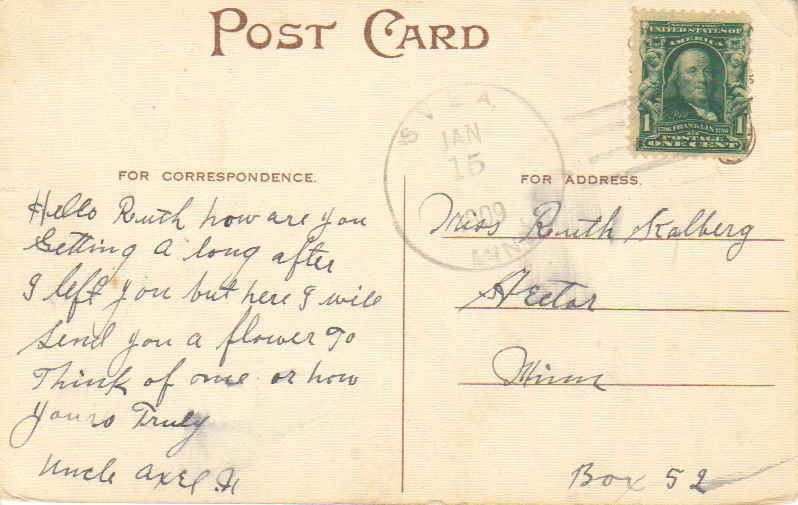 POST CARD
UNITED STATES OF
AMERICA
1 FRANKLIN 1
POSTAGE
ONE CENT
SVEA,
JAN
15
1909
MINN
FOR CORRESPONDENCE.
Hello Ruth how are you
Getting a long after
I left you but here I will
send you a flower To
Think of me or how
Yours Truly
Uncle Axel. H
FOR ADDRESS.
Miss Ruth Kalberg
Hector
Minn
Box 52